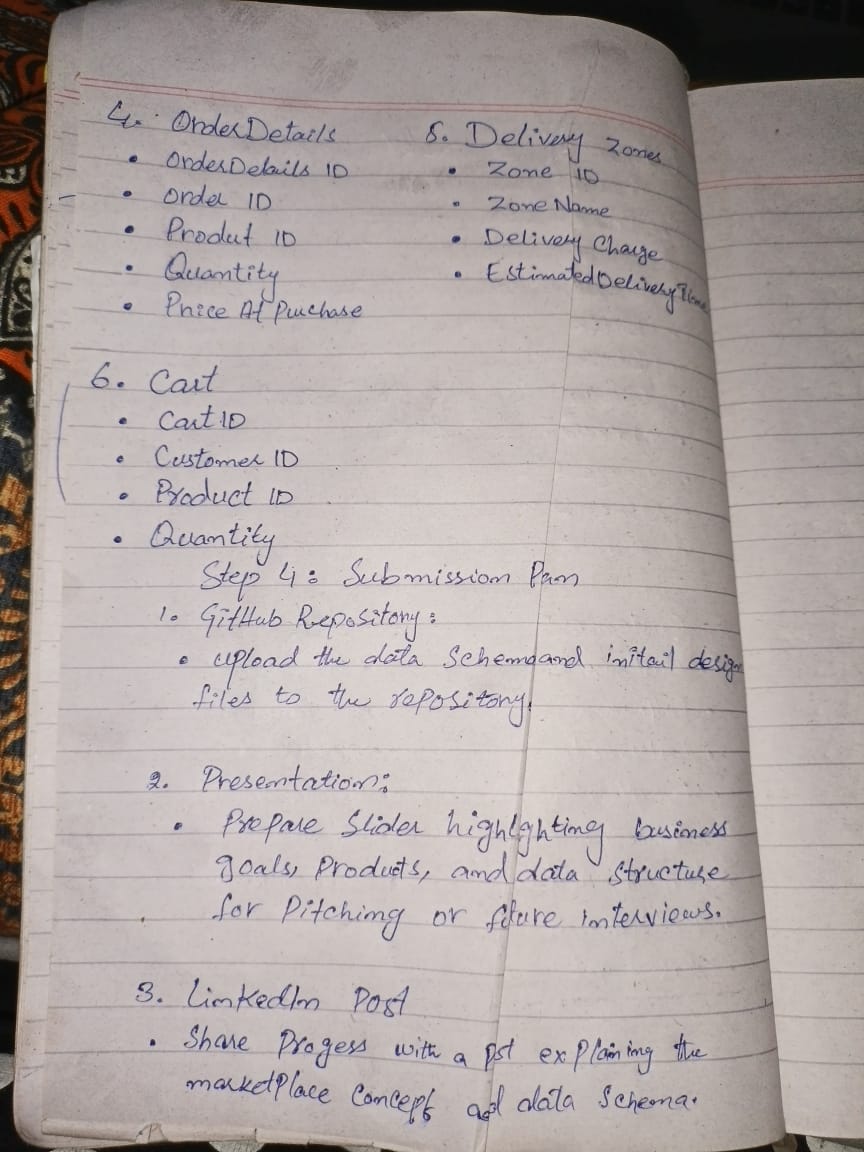 4. OrderDetails
• OrderDetails ID
• Order ID
• Produt ID
• Quantity
• Price At Purchase
5. Delivery Zones
• Zone ID
• Zone Name
• Delivery Charge
• EstimatedDeliveryTime
6. Cart
• Cart ID
• Customer ID
• Product ID
• Quantity
Step 4: Submission Pan
1. GitHub Repository:
• upload the data Schema and initail design
files to the repository.
2. Presentation:
• Prepare Slider highlghting business
goals, Products, and data structure
for Pitching or future interviews.
3. LinkedIn Post
• Share Progess with a pst explaining the
marketplace Concept and data Schema.